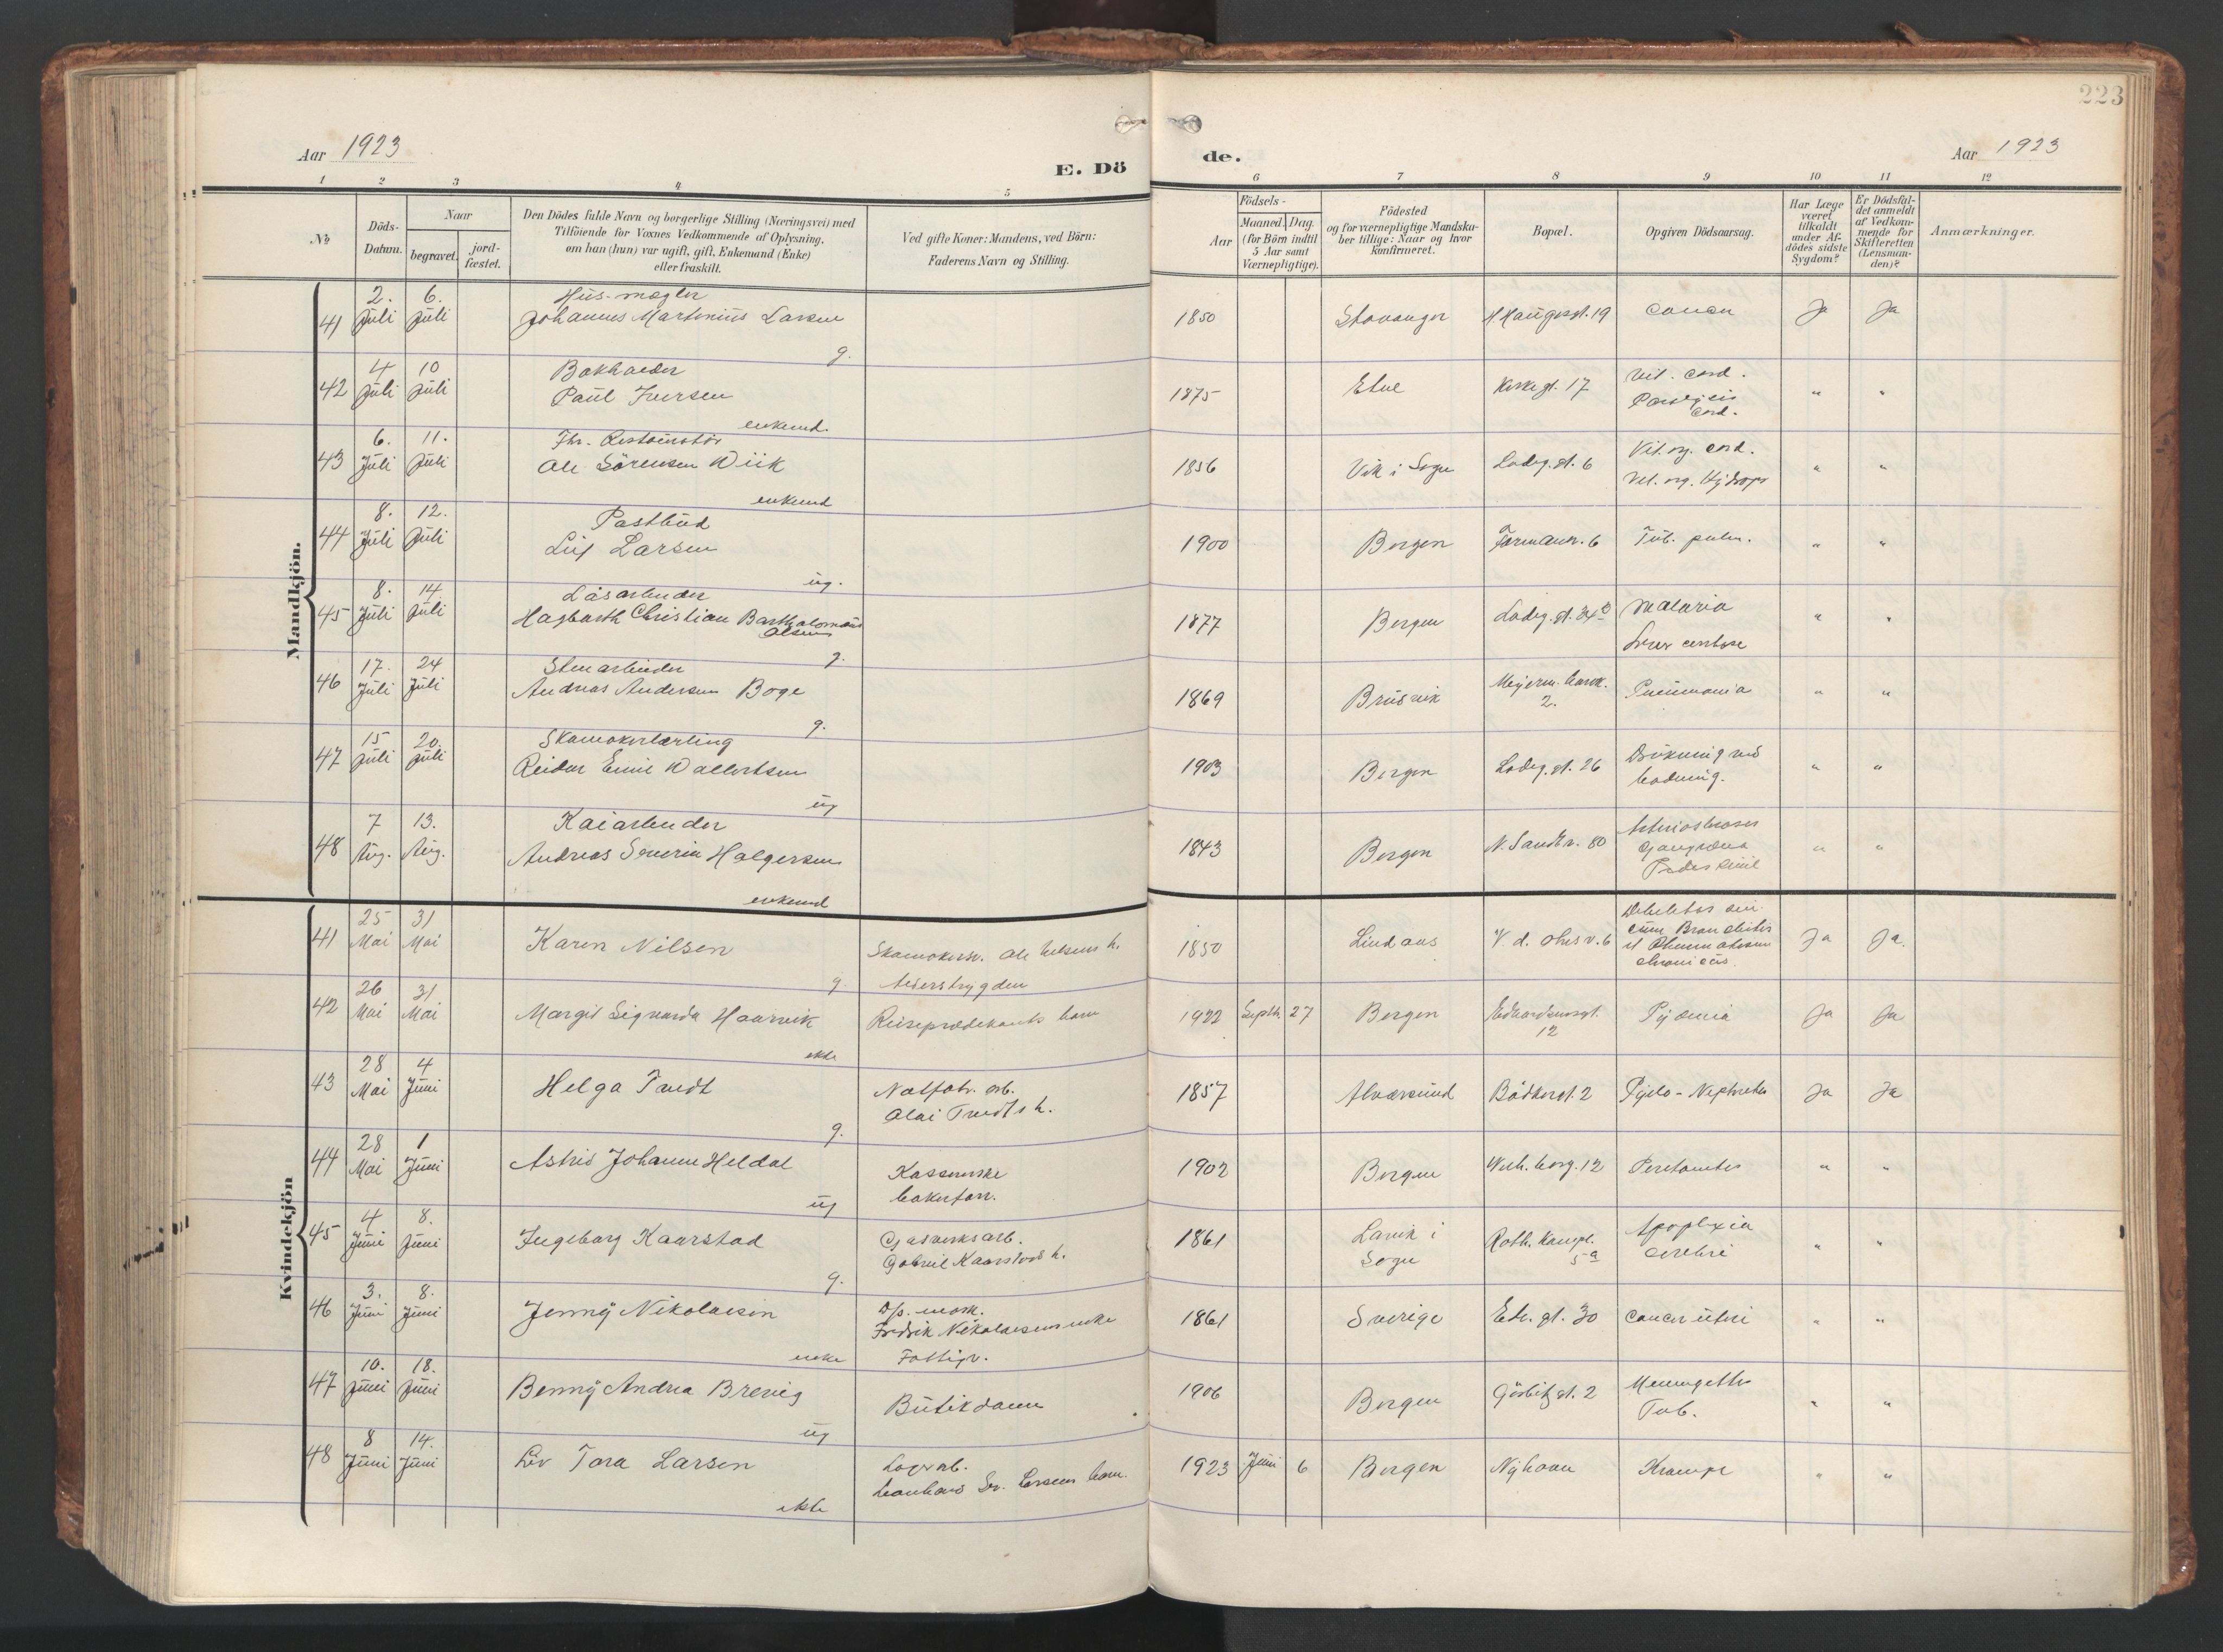 223
Aar 1923
E. Dö
de.
Aar 1923
1 2 3 4 5 6 7 8 9 10 11 12
№
Döds-Datum.
Naar
begravet.
jord-fæstet.
Den Dödes fulde Navn og borgerlige Stilling (Næringsvei) med
Tilföiende for Voxnes Vedkommende af Oplysning,
om han (hun) var ugift, gift, Enkemand (Enke)
eller fraskilt.
Ved gifte Koner: Mandens, ved Börn:
Faderens Navn og Stilling.
Födsels-
Aar
Maaned. Dag.
(for Börn indtil
5 Aar samt
Værnepligtige).
Födested
og for værnepligtige Mandska-
ber tillige: Naar og hvor
konfirmeret.
Bopæl.
Opgiven Dödsaarsag.
Har Læge
været
tilkaldt
under Af-
dödes sidste
Sygdom?
Er Dödsfal-
det anmeldt
af Vedkom-
mende for
Skifteretten
(Lensman-
den)?
Anmærkninger.
Mandkjön.
41 2. Juli 6. Juli Hus-mægler
Johannes Martinius Larsen g. 1850 Stavanger H. Haugesgt. 19 Cancer Ja Ja
42 4 Juli 10 Juli Bokholder
Paul Iversen enkemd. 1875 Etne Kirkegt. 17 Vit. cord.
Paralysis
cord. " "
43 6. Juli 11. Juli Fhv. Restauratør
Ole Sörensen Wiik enkemd 1856 Vik i Sogn Ladeg. gt. 6 Vit. org. cord.
Vit. org. Hydrops " "
44 8. Juli 12. Juli Postbud
Leif Larsen ug. 1900 Bergen Formann. 6 Tub. pulm. " "
45 8. Juli 14. Juli Låsarbeider
Hagbarth Christian Bartholomæus
Olsen g. 1877 Bergen Ladeg. gt. 34 b Malaria " "
46 17. Juli 24 Juli Stenarbeider
Andreas Andersen Boge g. 1869 Brüsvik Meyerm. bakk.
2. Pneumonia " "
47 15 Juli 20. Juli Skomakerlærling
Reidar Emil Wallertsen ug 1903 Bergen Ladeg. gt. 26 Drukning ved
badning. " "
48 7 Aug. 13. Aug. Kaiarbeider
Andreas Severin Holgersen enkemd 1843 Bergen N. Sandkv. 80 Arteriosklerose
Gangræna
Pedes senil " "
Kvindekjön
41 25 Mai 31 Mai Karen Nilsen g. Skomakersv. Ole Nilsens h. 1850 Lindaas Debilitas sen.
cum Bronchitis
et Rheumatismus
chronicus. Ja Ja.
42 26 Mai 31 Mai Margit Sigvarda Haarvik ekte Alderstrygden
Reisepredikants barn 1922 Septbr. 27 Bergen Edvardsensgt.
12 Pyæmia Ja Ja
43 28 Mai 4 Juni Helga Tvedt g. Natfotr. arb.
Olai Tvedts h. 1857 Alversund Bödkergt. 2 Pyelo-Nephritis Ja Ja
44 28 Mai 1 Juni Astrid Johanne Heldal ug Kassererske
bakerforr. 1902 Bergen Wilh. borg. 12 Peritonitis " "
45 4 Juni 8. Juni Ingeborg Kaarstad g. Gasverksarb.
Gabriel Kaarstads h. 1861 Lavik i
Sogn Roth. kampl.
5 a Apoplexia
cerebri " "
46 3. Juni 8. Juni Jenny Nikolaisen enke D/s. mask.
Fredrik Nikolaisens enke 1861 Sverige Edv. gt. 30 Cancer uteri " "
47 10. Juni 18. Juni Benny Andrea Brevig ug Fattigv.
Butikdame 1906 Bergen Görbitz gt. 2 Meningitis
Tub. " "
48 8 Juni 14. Juni Liv Tora Larsen ekte Lagerarb.
Leonhard Sev. Larsens barn. 1923 Juni 6 Bergen Nyhavn Krampe " "